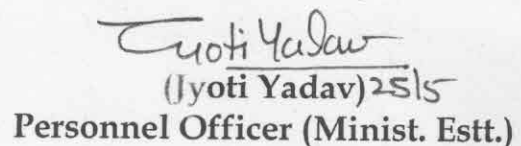 Jyoti Yadav
(Jyoti Yadav) 25/5
Personnel Officer (Minist. Estt.)